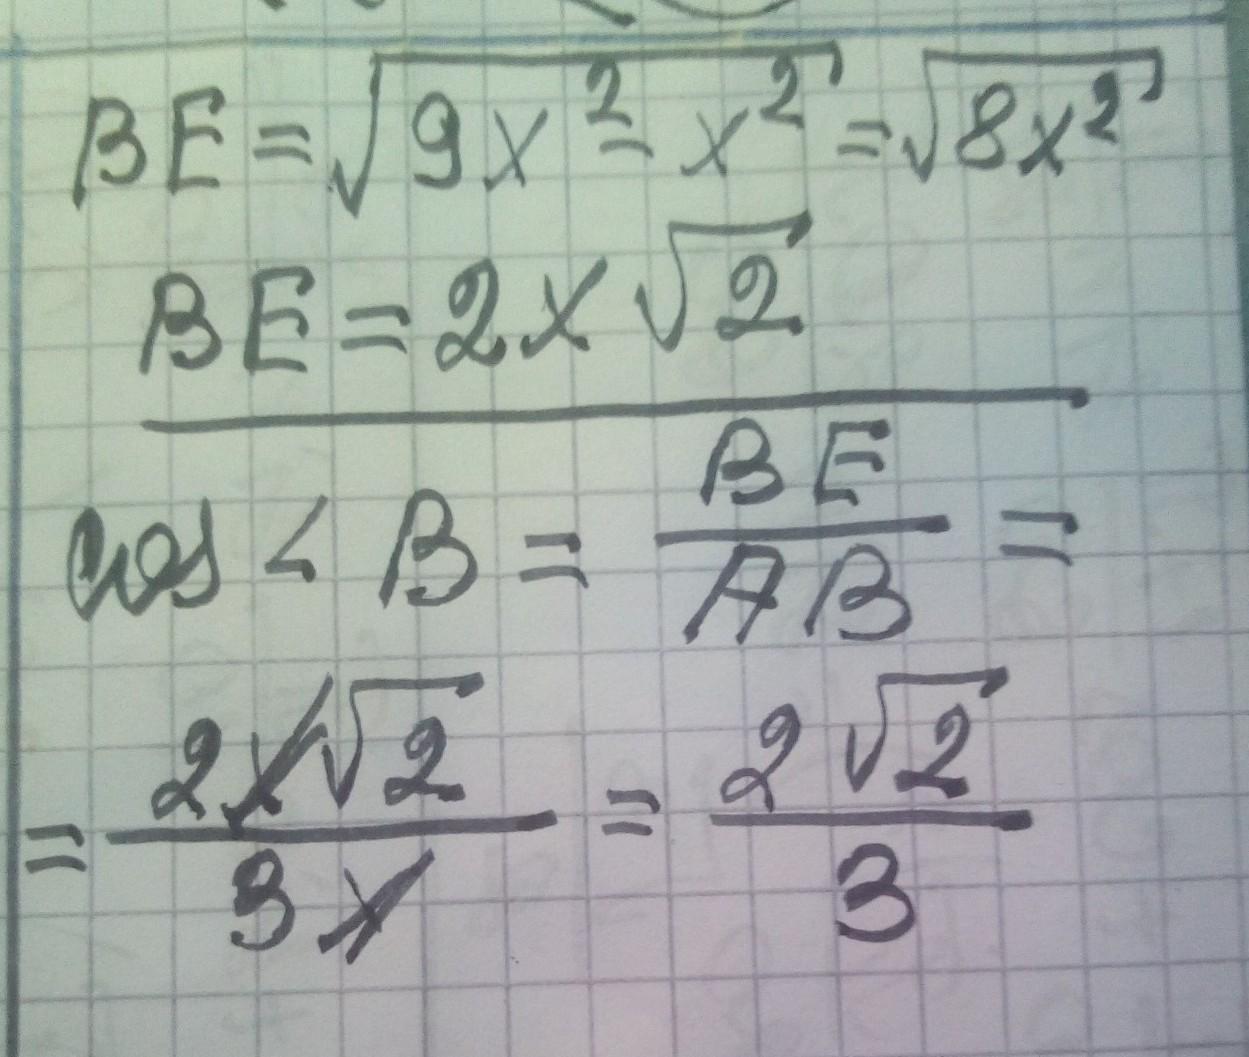 BE = √(9x² - x²) = √(8x²)
BE = 2x√2
cos < B = BE/AB =
= 2x√2/3x = 2√2/3